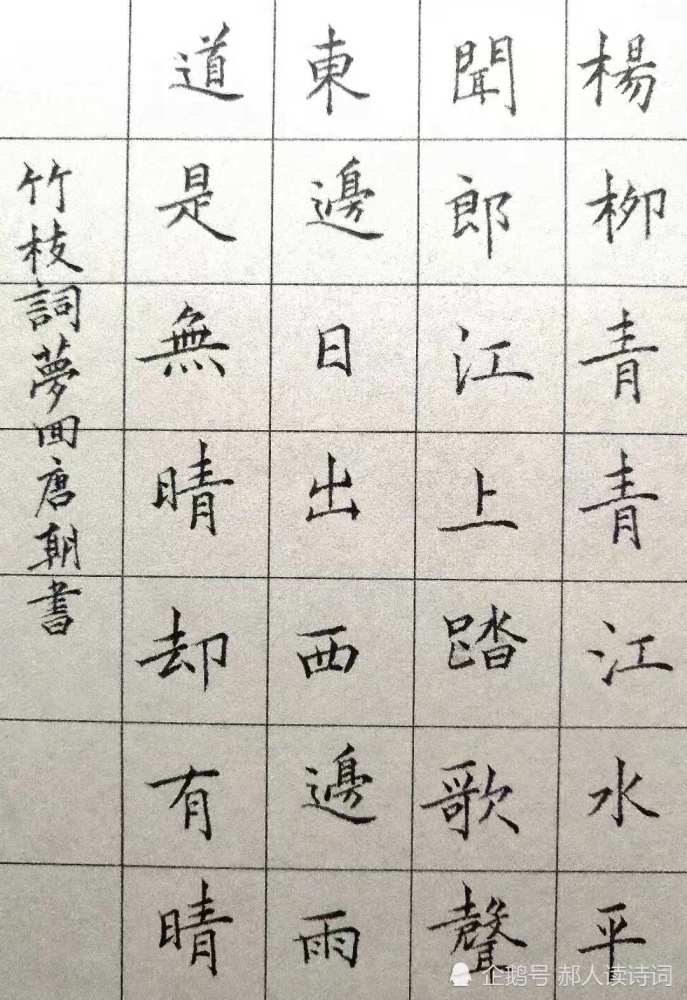 楊柳青青江水平
聞郎江上踏歌聲
東邊日出西邊雨
道是無晴却有晴
竹枝詞夢回唐朝書
企鹅号 郝人读诗词